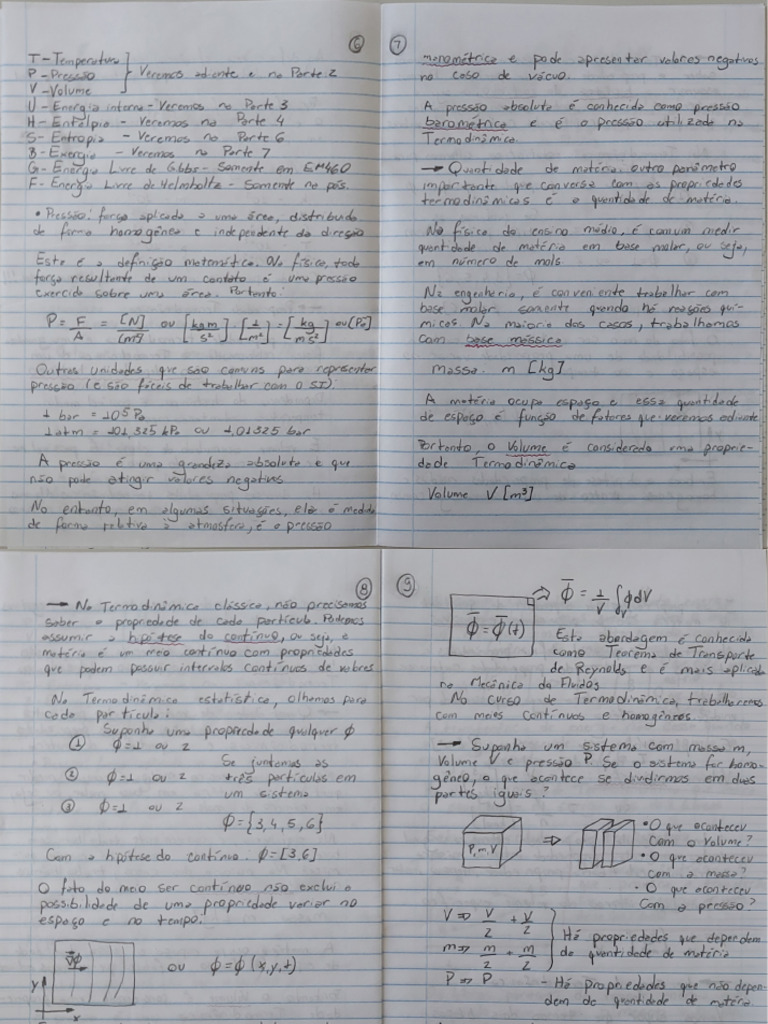 6
T - Temperatura
P - Pressão
V - Volume
Veremos adiante e na Parte 2
U - Energia interna - Veremos na Parte 3
H - Entalpia - Veremos na Parte 4
S - Entropia - Veremos na Parte 6
B - Exergia - Veremos na Parte 7
G - Energia Livre de Gibbs - Somente em EM460
F - Energia Livre de Helmholtz - Somente na pós.
• Pressão: força aplicada a uma área, distribuida
de forma homogênea e independente da direção
Este é a definição matemática. Na física, toda
força resultante de um contato é uma pressão
exercida sobre uma área. Portanto:
P = F/A = [N]/[m²] ou [kg m/s²] · [1/m²] = [kg/m s²] ou [Pa]
Outras unidades que são comuns para representar
pressão (e são fáceis de trabalhar com o SI):
1 bar = 10⁵ Pa
1 atm = 101,325 kPa ou 1,01325 bar
A pressão é uma grandeza absoluta e que
não pode atingir valores negativos
No entanto, em algumas situações, ela é medida
de forma relativa à atmosfera, é a pressão
7
manométrica e pode apresentar valores negativos
no caso de vácuo.
A pressão absoluta é conhecida como pressão
barométrica e é a pressão utilizada na
Termodinâmica
→ Quantidade de matéria: outro parâmetro
importante que conversa com as propriedades
termodinâmicas é a quantidade de matéria.
Na física do ensino médio, é comum medir
quantidade de matéria em base molar, ou seja,
em número de mols
Na engenharia, é conveniente trabalhar com
base molar somente quando há reações quí-
micas. Na maioria dos casos, trabalhamos
com base mássica
massa: m [kg]
A matéria ocupa espaço e essa quantidade
de espaço é função de fatores que veremos adiante
Portanto, o Volume é considerado uma proprie-
dade Termodinâmica
Volume V [m³]
8
→ Na Termodinâmica clássica, não precisamos
saber a propriedade de cada partícula. Podemos
assumir a hipótese do contínuo, ou seja, a
matéria é um meio contínuo com propriedades
que podem possuir intervalos contínuos de valores
Na Termodinâmica estatística, olhamos para
cada partícula:
Suponha uma propriedade qualquer ϕ
1 ϕ=1 ou 2
2 ϕ=1 ou 2
3 ϕ=1 ou 2
Se juntamos as
três partículas em
um sistema
ϕ = {3,4,5,6}
Com a hipótese do contínuo: ϕ=[3,6]
O fato do meio ser contínuo não exclui a
possibilidade de uma propriedade variar no
espaço e no tempo:
∇ϕ
y
x
ou ϕ=ϕ(x,y,t)
9
ϕ̅ = ϕ̅(t)
ϕ̅ = 1/V ∫ᵥ ϕdV
Esta abordagem é conhecida
como Teorema de Transporte
de Reynolds e é mais aplicada
na Mecânica da Fluidos
No curso de Termodinâmica, trabalharemos
com meios contínuos e homogêneos.
→ Suponha um sistema com massa m,
Volume V e pressão P. Se o sistema for homo-
gêneo, o que acontece se dividirmos em duas
partes iguais?
P, m, V
⇒
• O que aconteceu
com o Volume?
• O que aconteceu
com a massa?
• O que aconteceu
com a pressão?
V ⇒ V/2 + V/2
m ⇒ m/2 + m/2
Há propriedades que dependem
de quantidade de matéria
P ⇒ P
- Há propriedades que não depen-
dem de quantidade de matéria.